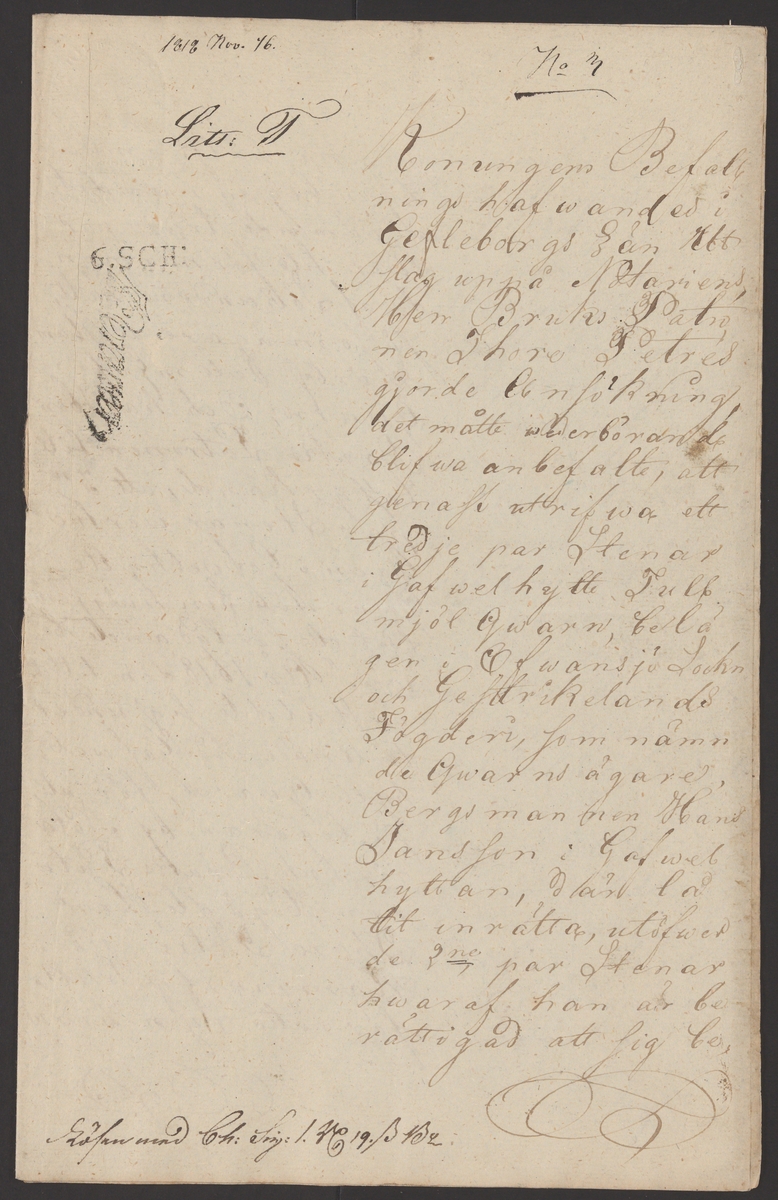 1818 Nov. 16.
No 3
Litt: T
6.SCH:
Konungens Befall
nings hafwandes i
Gefleborgs Län Utt
slag uppå Notariens,
Herr Bruks Patro
nen Thore Petrés
gjorde Ansökning,
det måtte wederbörande
blifwa anbefalte, att
genast utrifwa ett
tredje par Stenar
i Gafwelhytte Tull
mjöl Qwarn, belä
gen i Ofwansjö Sockn
och Gestrikelands
Fögderi, som nämn
de Qwarns ägare,
Bergsmannen Hans
Jansson i Gafwel
hyttan, där lå
tit inrätta, utöfwer
de 2ne par Stenar
hwaraf han är be
rättigad att sig be,
Lösen med Ch: Sig: 1. Rd 19. ß Bco